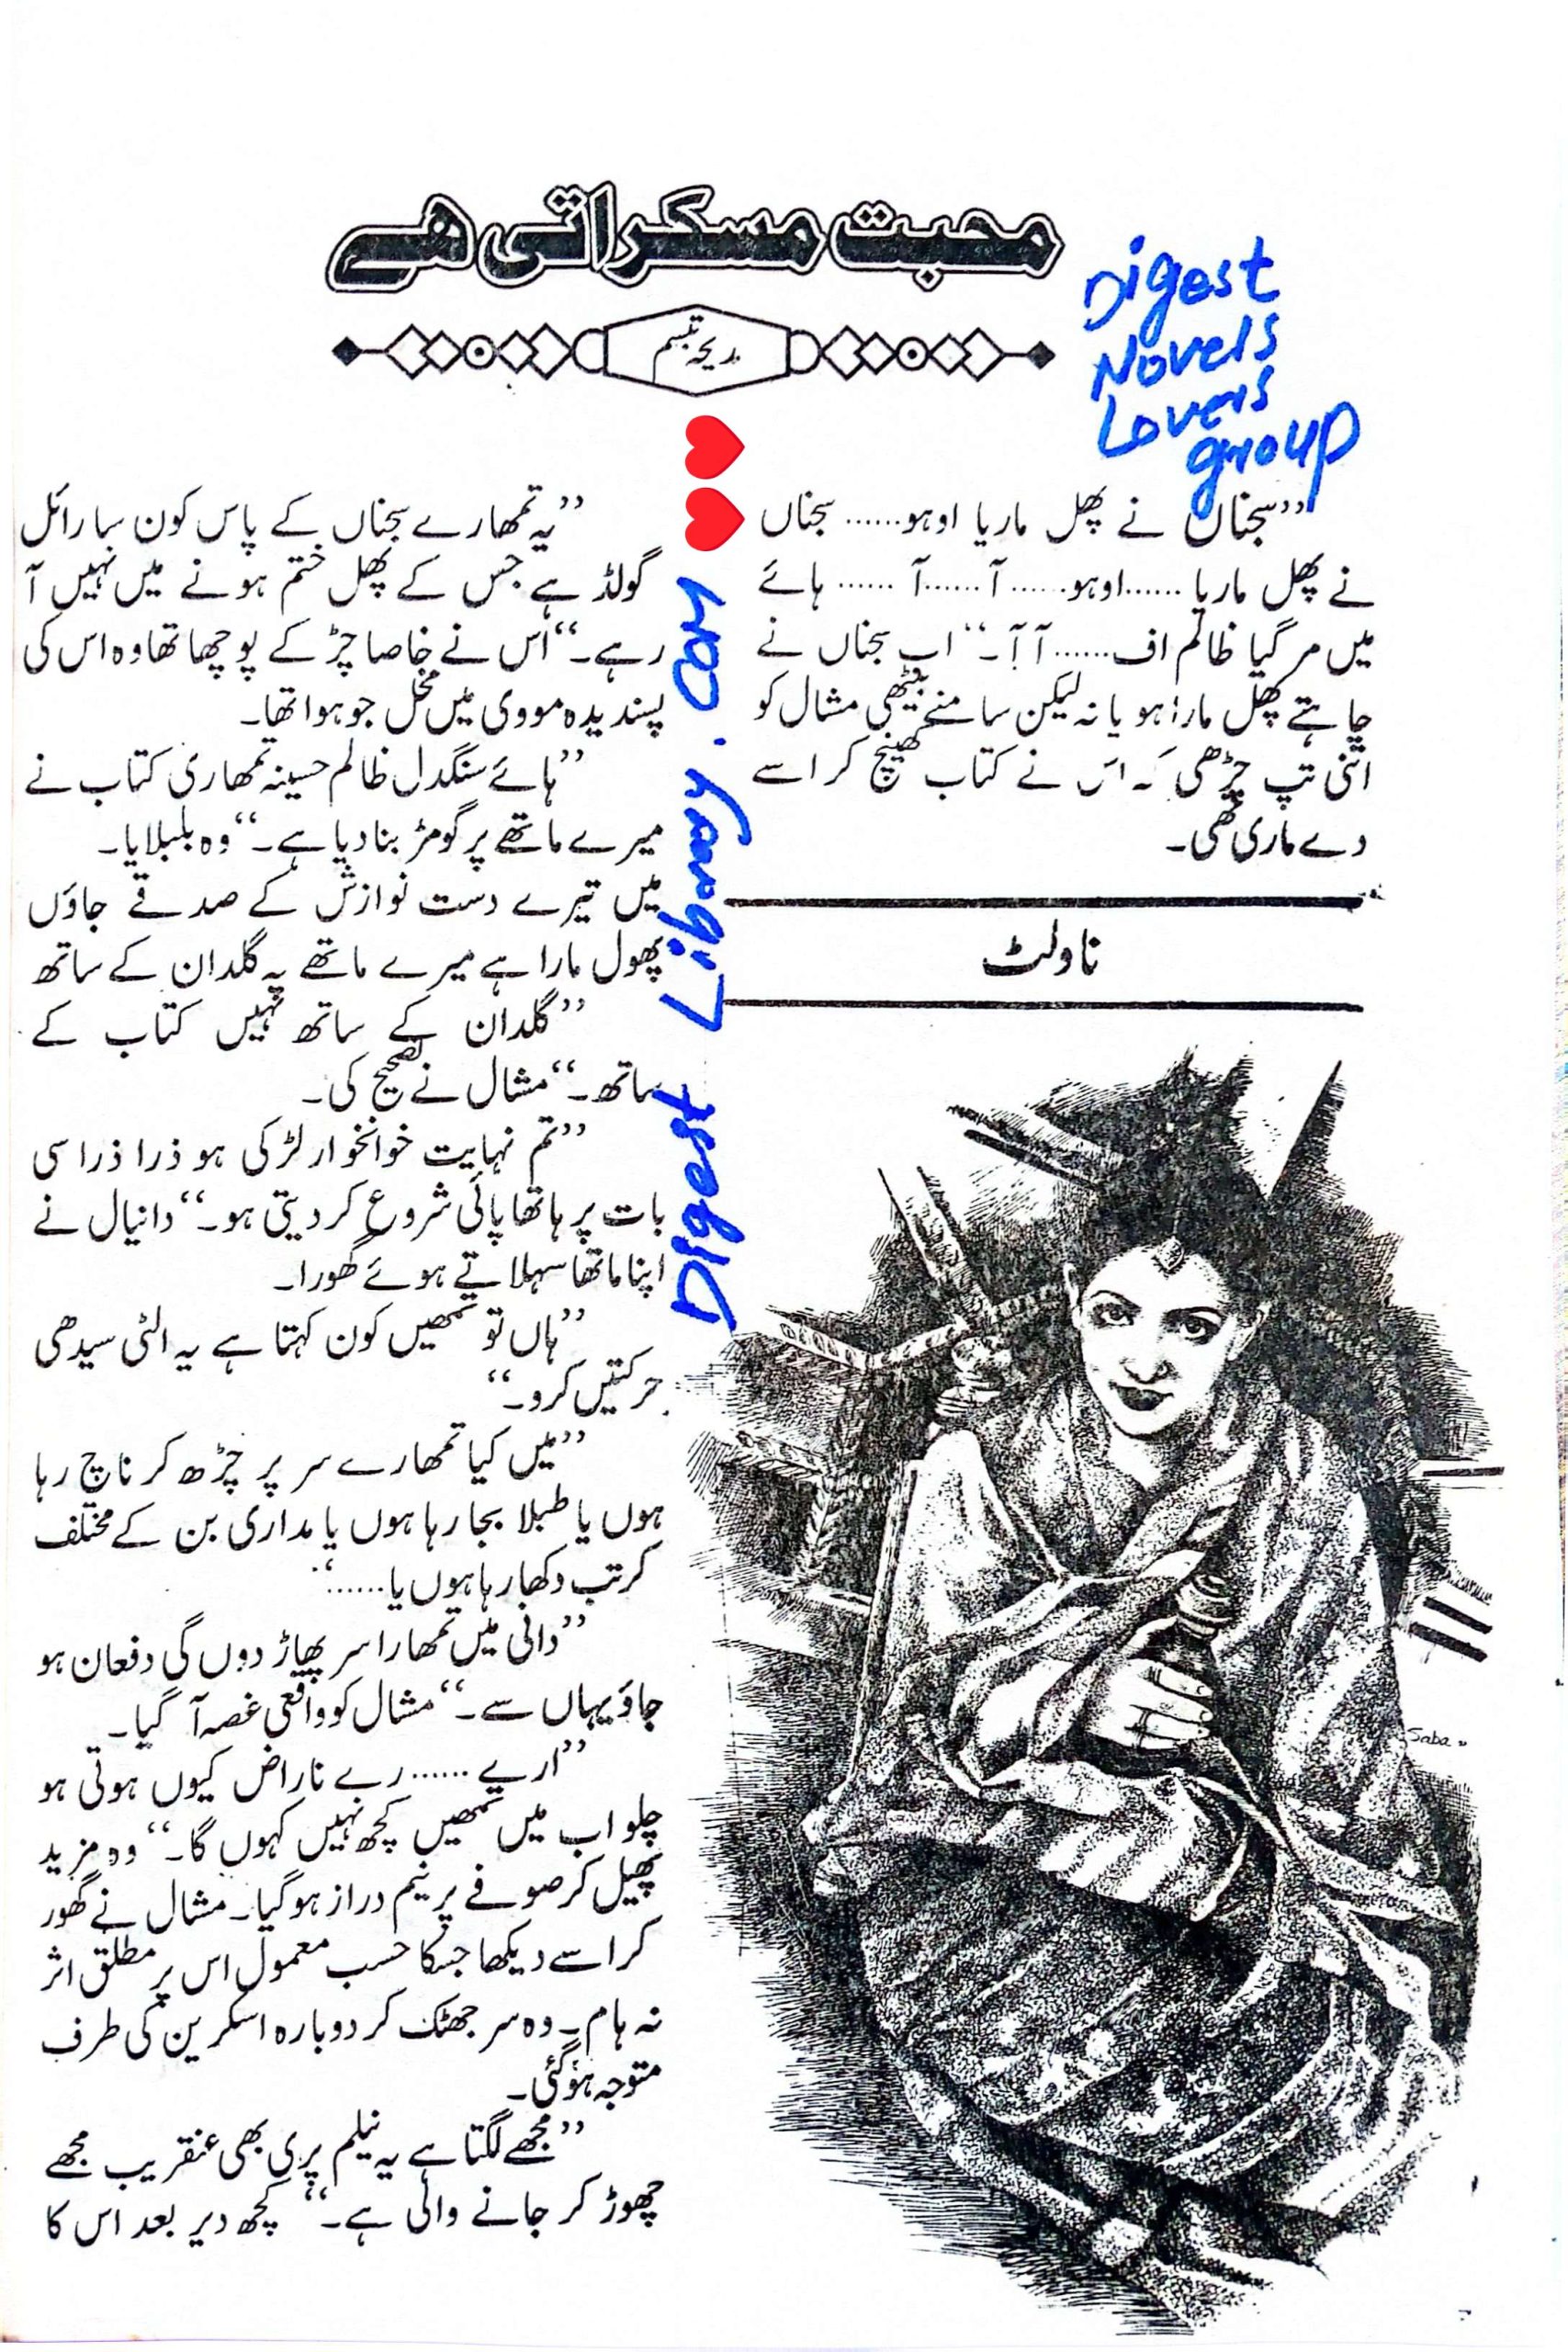 محبت مسکراتی ھے
مدیحہ تبسم
Digest
Novels
Lovers
group
’’سجناں نے پھل ماریا اوہو...... سجناں
نے پھل ماریا ......اوہو...... آ......آ ...... ہائے
میں مر گیا ظالم اف...... آ آ۔‘‘ اب سجناں نے
چاہتے پھل مارا ہو یا نہ لیکن سامنے بیٹھی مشال کو
اتنی تپ چڑھی کہ اس نے کتاب کھینچ کر اسے
دے ماری تھی۔
ناولٹ
’’یہ تمھارے سجناں کے پاس کون سا رائل
گولڈ ہے جس کے پھل ختم ہونے میں نہیں آ
رہے۔‘‘ اس نے خاصا چڑ کے پوچھا تھا وہ اس کی
پسندیدہ مووی میں مخل جو ہوا تھا۔
’’ہائے سنگدل ظالم حسینہ تمھاری کتاب نے
میرے ماتھے پر گومڑ بنا دیا ہے۔‘‘ وہ بلبلایا۔
میں تیرے دست نوازش کے صدقے جاؤں
پھول مارا ہے میرے ماتھے پہ گلدان کے ساتھ
’’گلدان کے ساتھ نہیں کتاب کے
ساتھ۔‘‘ مشال نے تصحیح کی۔
’’تم نہایت خوانخوار لڑکی ہو ذرا ذرا سی
بات پر ہاتھا پائی شروع کر دیتی ہو۔‘‘ دانیال نے
اپنا ماتھا سہلاتے ہوئے گھورا۔
’’ہاں تو تمھیں کون کہتا ہے یہ الٹی سیدھی
حرکتیں کرو۔‘‘
’’میں کیا تمھارے سر پر چڑھ کر ناچ رہا
ہوں یا طبلا بجا رہا ہوں یا مداری بن کے مختلف
کرتب دکھا رہا ہوں یا......‘‘
’’دانی میں تمھارا سر پھاڑ دوں گی دفعان ہو
جاؤ یہاں سے۔‘‘ مشال کو واقعی غصہ آ گیا۔
’’ارے ......رے ناراض کیوں ہوتی ہو
چلو اب میں تمھیں کچھ نہیں کہوں گا۔‘‘ وہ مزید
پھیل کر صوفے پر نیم دراز ہو گیا۔ مشال نے گھور
کر اسے دیکھا جسکا حسب معمول اس پر مطلق اثر
نہ ہام۔ وہ سر جھٹک کر دوبارہ اسکرین کی طرف
متوجہ ہو گئی۔
’’مجھے لگتا ہے یہ نیلم پری بھی عنقریب مجھے
چھوڑ کر جانے والی ہے۔‘‘ کچھ دیر بعد اس کا
Digest Library.com
Saba